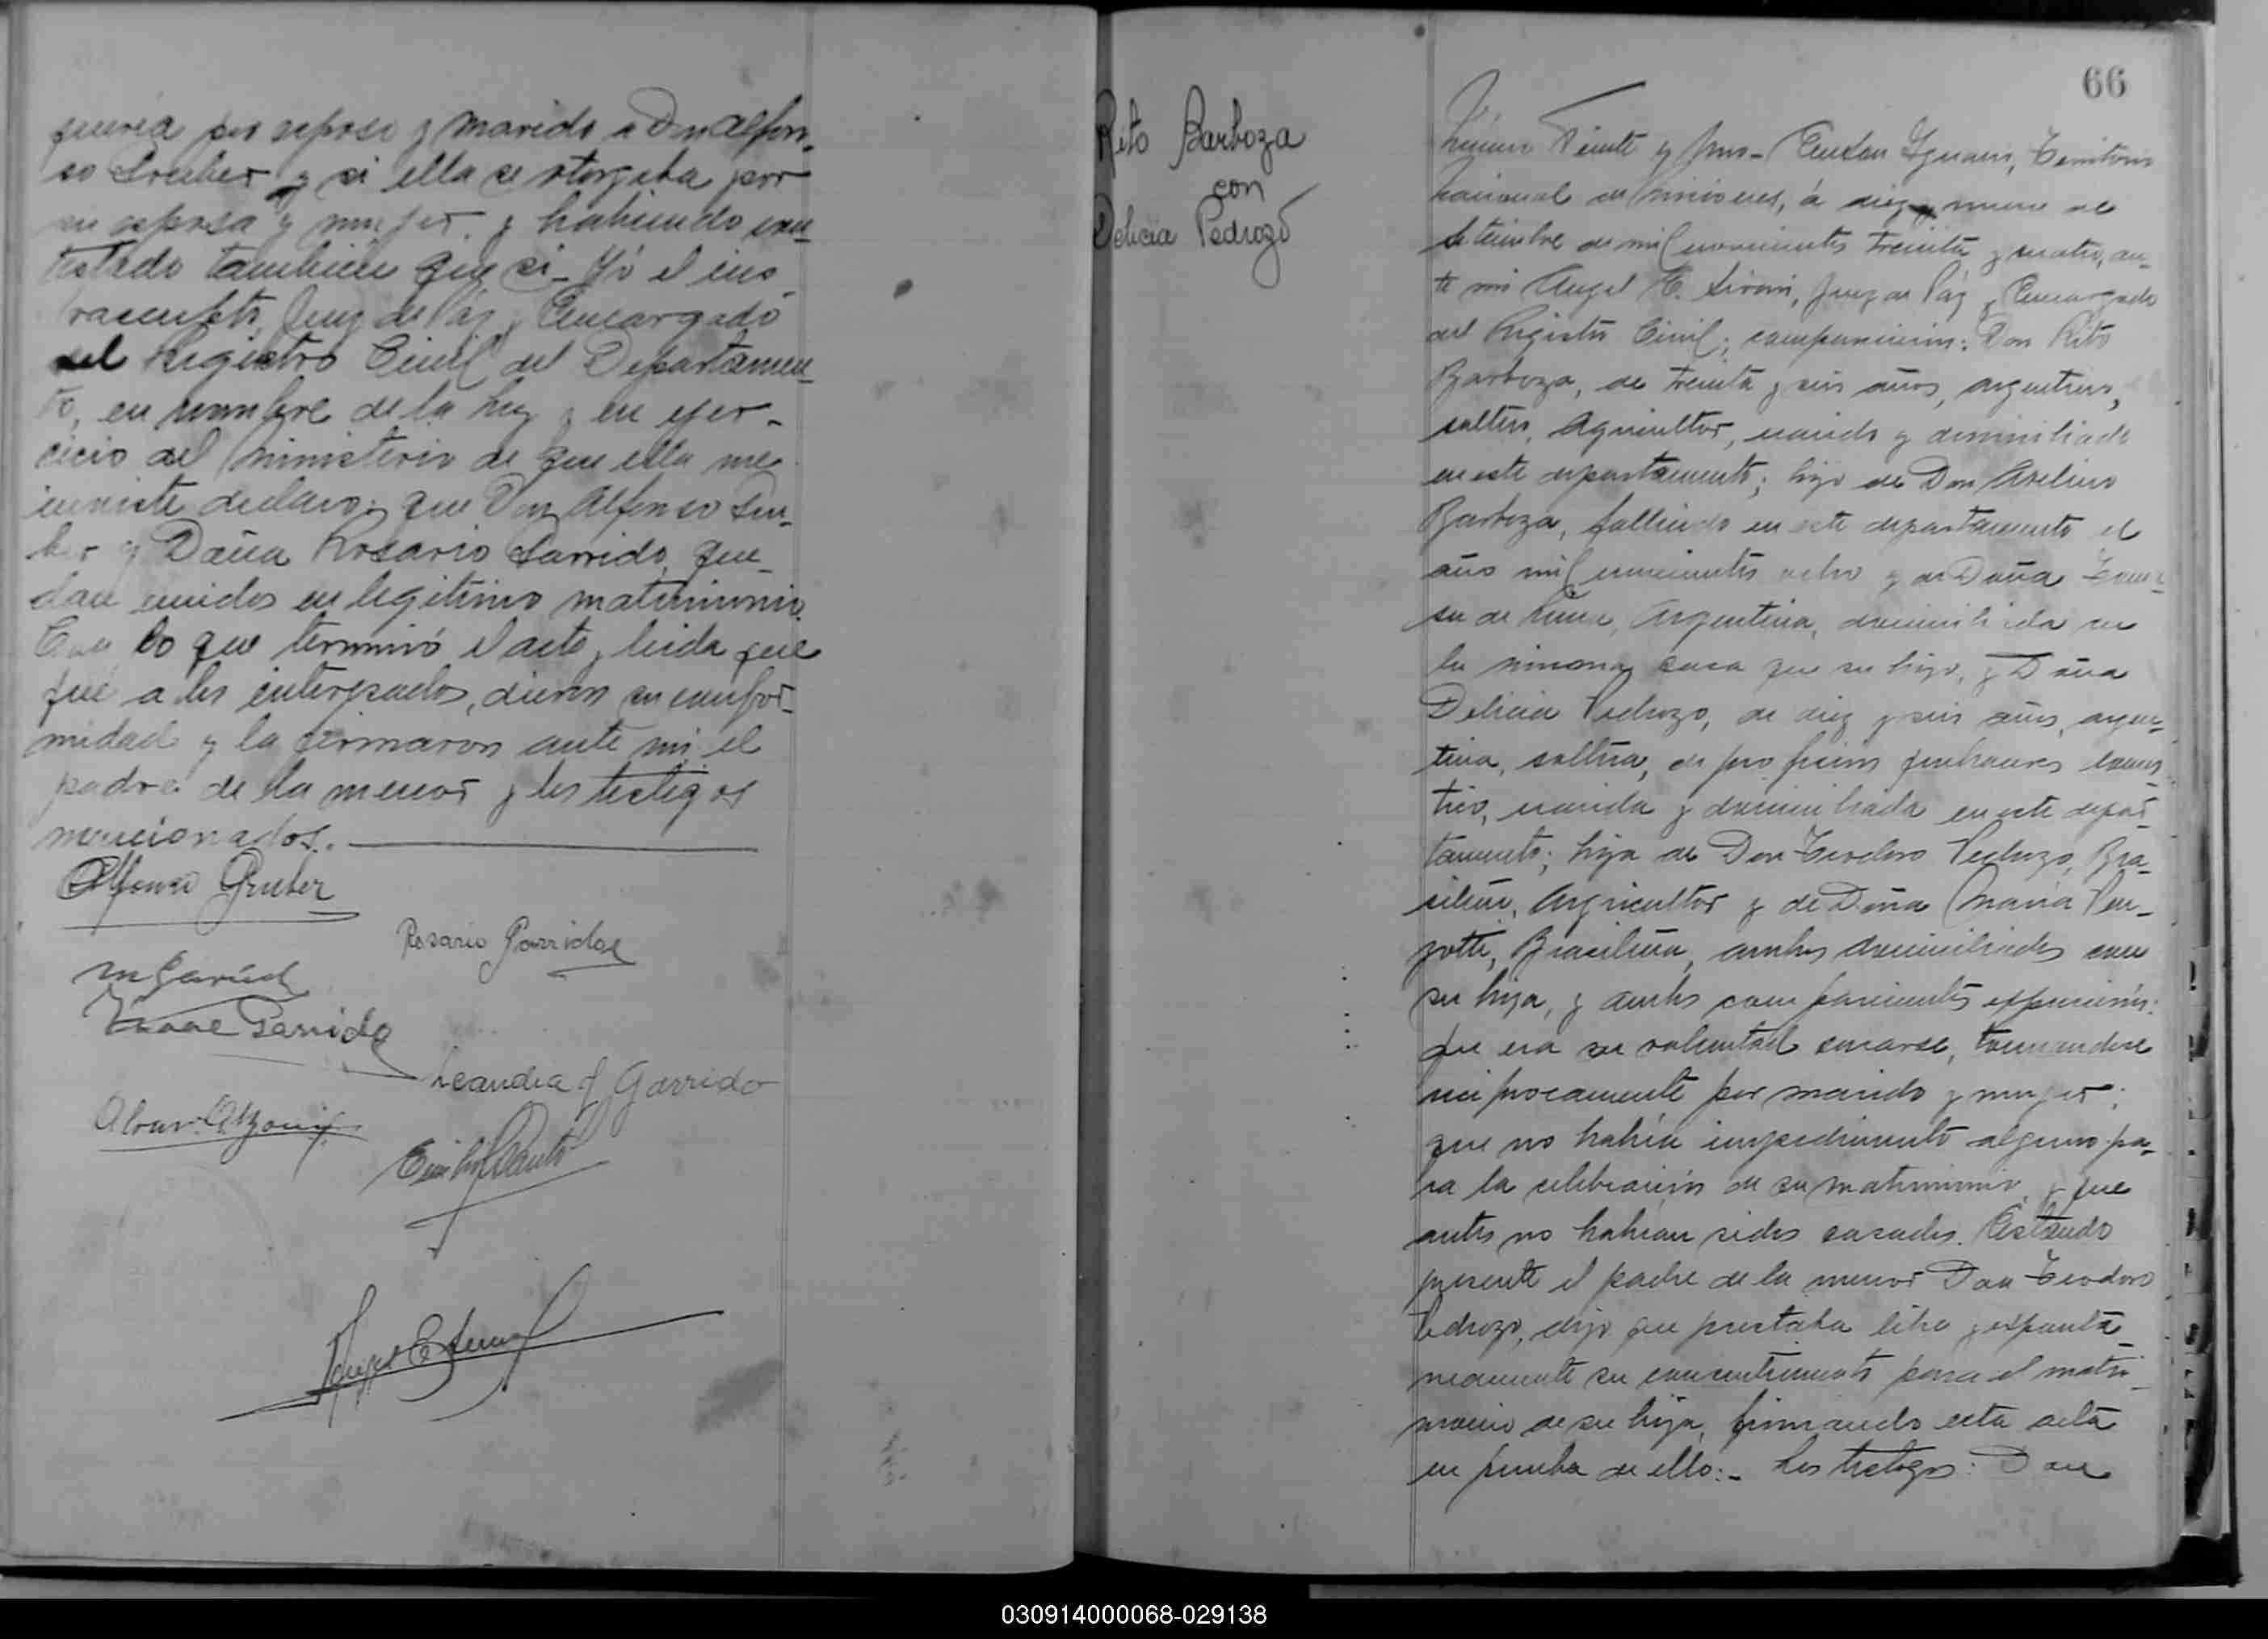 quería por esposo y marido a Don Alfon-
so Gruber y si ella se otorgaba por
su esposa y mujer y habiendo con-
testado también que si_ Yó el ins
Juez de Páz y Encargado
del Registro Civil del Departamen-
to, en nombre de la ley y en ejer-
cicio del ministerio de que ella me
inviste declaro: que Don Alfonso Gru-
ber y Doña Rosario Garrido, que-
dan unidos en legítimo matrimonio.
Con lo que terminó el acto y leida que
fué a los interesados, dieron su confor-
midad y la firmaron ante mi, el
padre de la menor y los testigos
mencionados.
Alfonso Gruber
Rosario Garrido
Garrido
Leandra J Garrido
66
Rito Barboza
con
Delicia Pedrozo
Número Veinte y uno- Territorio
Nacional de Misiones, á diez y nueve de
Setiembre de mil novecientos treinta y cuatro, an-
te mi Angel E. Juez de Páz y Encargado
del Registro Civil; comparecieron: Don Rito
Barboza, de treinta y seis años, argentino,
soltero, Agricultor, nacido y domiciliado
en este departamento; hijo de Don Avelino
Barboza, fallecido en este departamento el
año mil novecientos ocho y de Doña
argentina, domiciliada en
la misma casa que su hijo, y Doña
Delicia Pedrozo, de diez y seis años, argen-
tina, soltera, de profesion quehaceres domés-
ticos, nacida y domiciliada en este depar-
tamento; hija de Don Teodoro Pedrozo, Bra-
silero, Agricultor y de Doña María
Brasilera, ambos domiciliados con
su hija, y ambos comparecientes expusieron:
que era su voluntad casarse, tomandose
reciprocamente por marido y mujer;
que no había impedimento alguno pa-
ra la celebración de su matrimonio, y que
antes no habían sidos casados. Estando
presente el padre de la menor Don Teodoro
Pedrozo, dijo que prestaba libre y espontá-
neamente su consentimiento para el matri-
monio de su hija, firmando esta acta
en prueba de ello:- Los testigos: Don
030914000068-029138